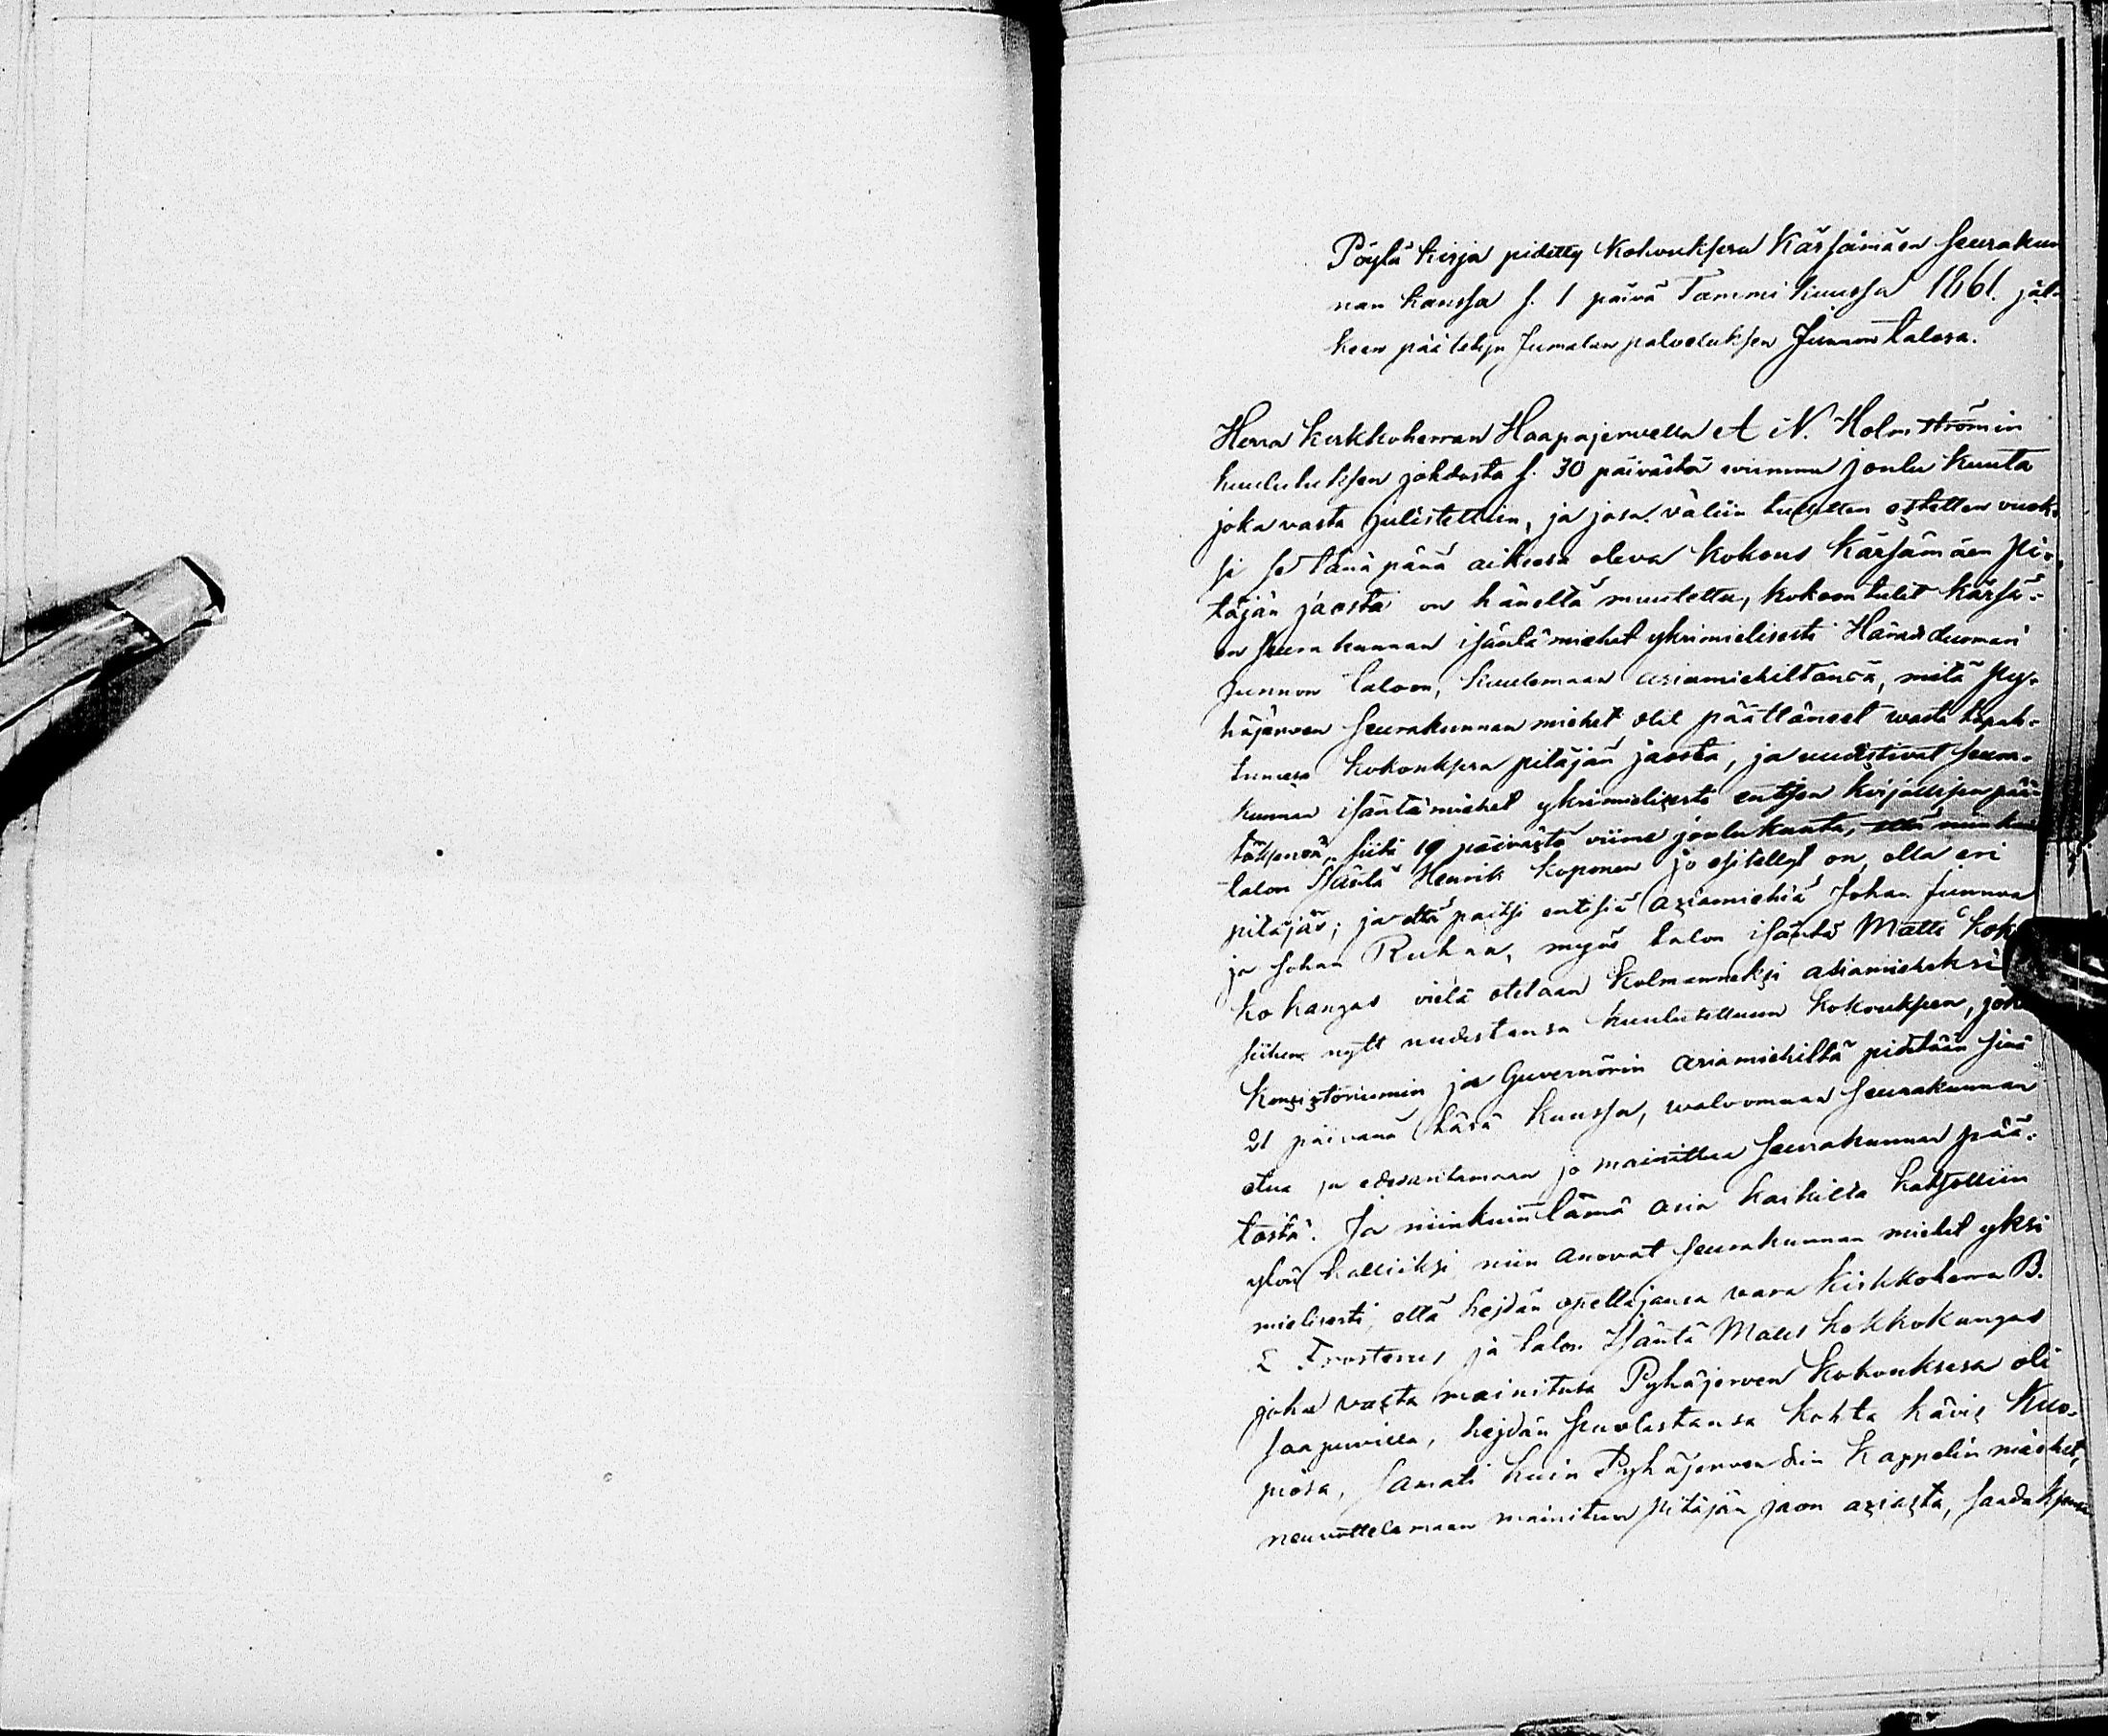 Pöytä kirja pidetty Kokouksesa Kärsämäen seurakun
nan kanssa s. 1 päivä Tammi kuussa 1861. jäl-
keen päätetyn Jumalan palveluksen Junnon talosa.
Herra Kirkkoherran Haapajervella A N. Holmströmin
kuulutuksen johdosta s. 30 päivästä viimme joulu kuuta
joka vasta julistettiin, ja josa väliin tulutten estetten vuok-
si se tänä pänä aikeesa oleva kokous Kärsämäen Pi-
täjän jaosta on häneltä muutettu, kokoon tulit Kärsä-
en seura kunnan isäntä miehet yksimielisesti
Junnon taloon, kuulemaan asiamiehiltänsä, mitä Py-
häjerven seurakunnan miehet olit päättäneet vasta tapah-
tunesa kokouksesa pitäjän jaosta, ja uudistivat seura-
kunnan isäntämiehet yksimielisesti entisen kirjallisen pää-
töksensä, siitä 19 päivästä viime joulukuuta, että niinkuin
talon Isäntä Henrik Koponen jo esitellyt on, olla eri
pitäjäs; ja että paitsi entisiä Asiamiehiä Johan Junnoa
ja Johan Ruhaa, myös talon isäntä Matti Kok
ko kangas vielä otetaan kolmanneksi asiamieheksi
siihen nytt uudestansa kuulutettuun kokoukseen, joka
Konsistoriumin ja Guvernörin asiamiehiltä pidetään sinä
21 päivänä täsä kuussa, walvomaan seurakunnan
etua ja edesantamaan jo mainittua seurakunnan pää-
töstä. Ja niinkuin tämä asia kaikilta katsottiin
ylön kalliiksi niin anovat seurakunnan miehet yksi
mielisesti, että heidän opettajansa vara Kirkkoherra B.
E Frosterus ja talon Isäntä Matts Kokkokangas
joka vasta mainitusa Pyhäjerven kokouksesa oli
saapuvilla, heidän puolestansa kohta kävis Kuo-
piosa, samati kuin Pyhäjerven kin Kappelin miehet,
neuvottelemaan mainitun Pitäjän jaon asiasta, saadaksensa